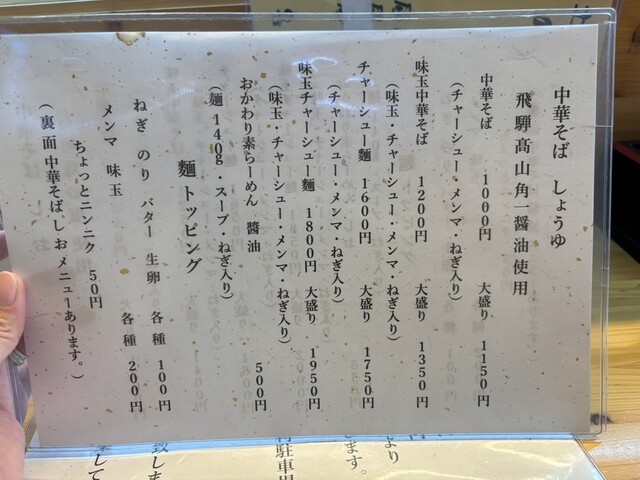 中華そば しょうゆ
飛騨高山角一醤油使用
中華そば 1000円 大盛り 1150円
(チャーシュー・メンマ・ねぎ入り)
味玉中華そば 1200円 大盛り 1350円
(味玉・チャーシュー・メンマ・ねぎ入り)
チャーシュー麺 1600円 大盛り 1750円
(チャーシュー・メンマ・ねぎ入り)
味玉チャーシュー麺 1800円 大盛り 1950円
(味玉・チャーシュー・メンマ・ねぎ入り)
おかわり素らーめん 醬油 500円
(麺140g・スープ・ねぎ入り)
麺トッピング
ねぎ のり バター 生卵 各種 100円
メンマ 味玉 各種 200円
ちょっとニンニク 50円
(裏面中華そばしおメニューあります。)
より
します。
駐車
致しま
して